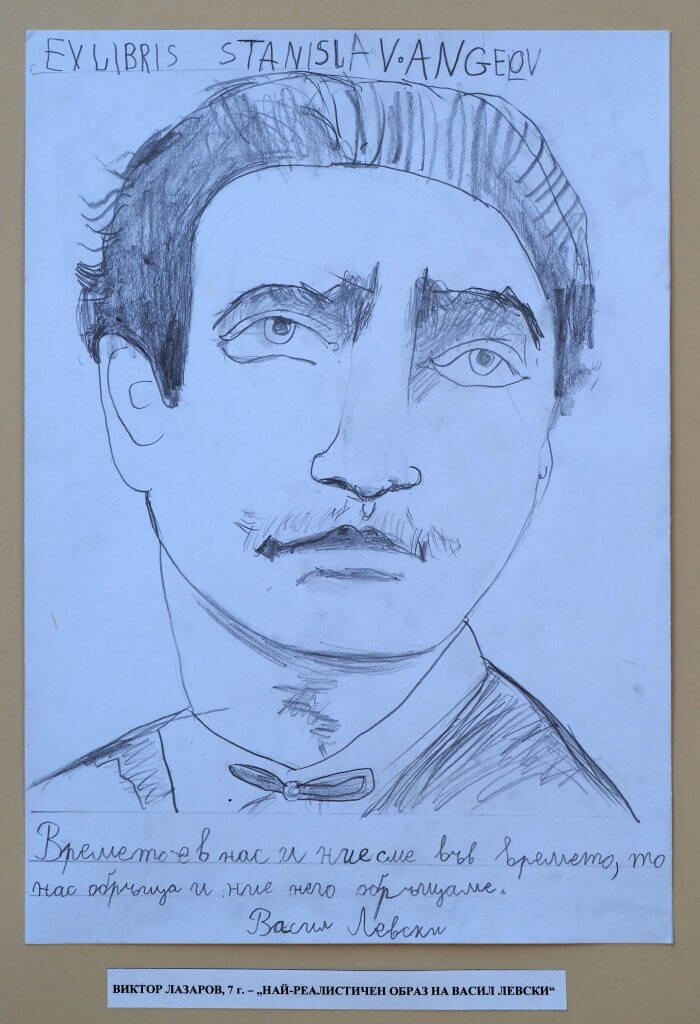 EX LIBRIS STANISLAV·ANGELOV
Времето е в нас и ние сме във времето, то
нас обръща и ние него обръщаме.
Васил Левски
ВИКТОР ЛАЗАРОВ, 7 г. – „НАЙ-РЕАЛИСТИЧЕН ОБРАЗ НА ВАСИЛ ЛЕВСКИ“